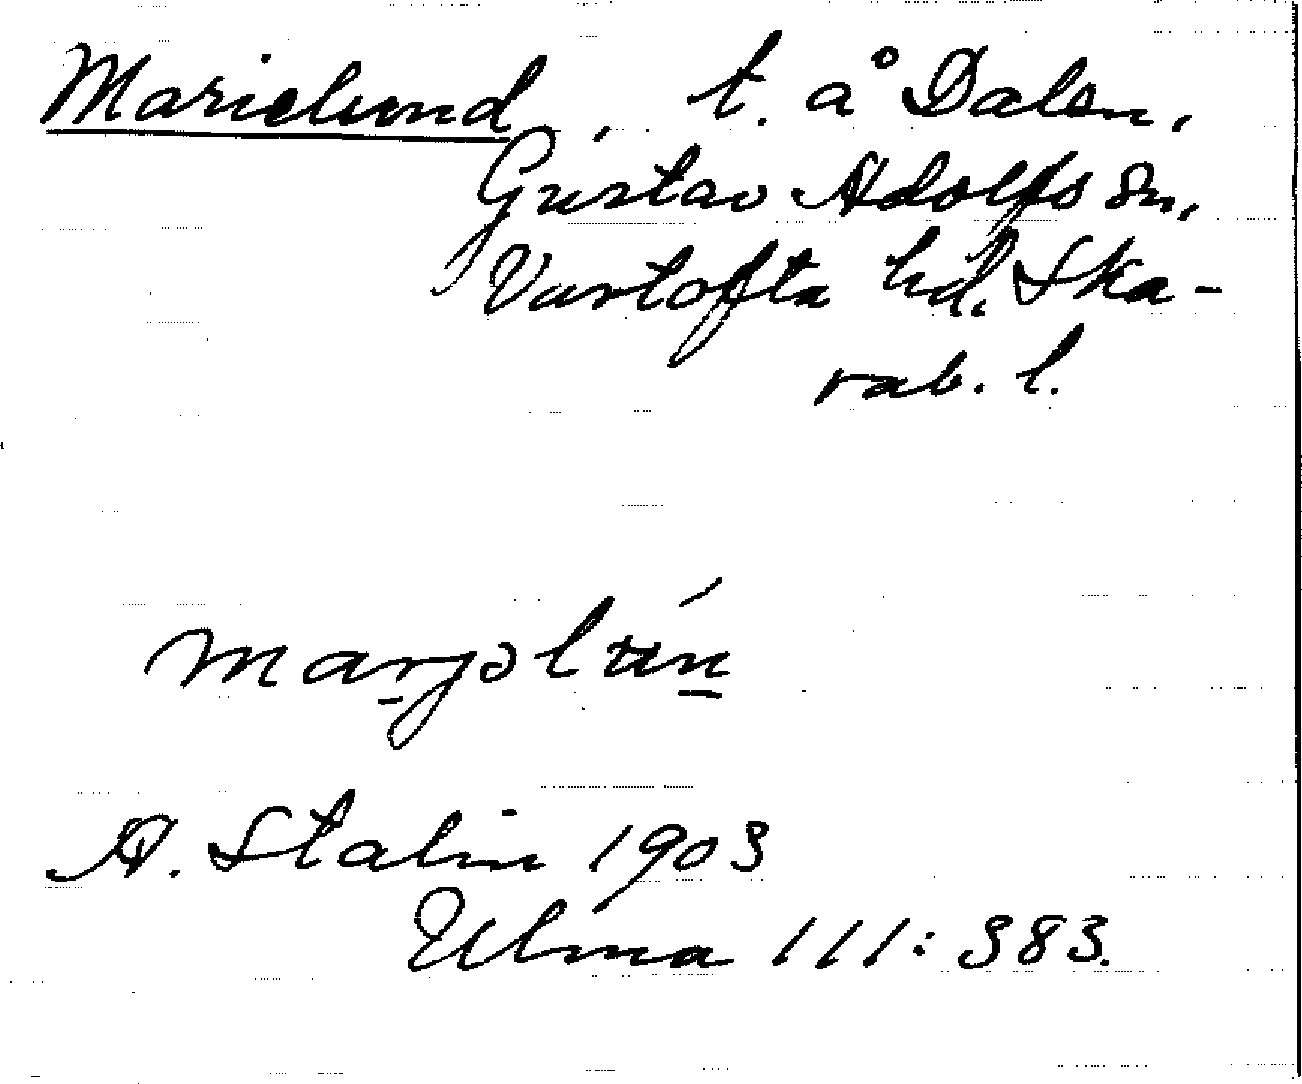 Marielund, t. å Dalen,
Gustav Adolfs sn,
Vartofta hd. Ska-
rab. l.
A. Stalin 1903
Ulma 111: 383.